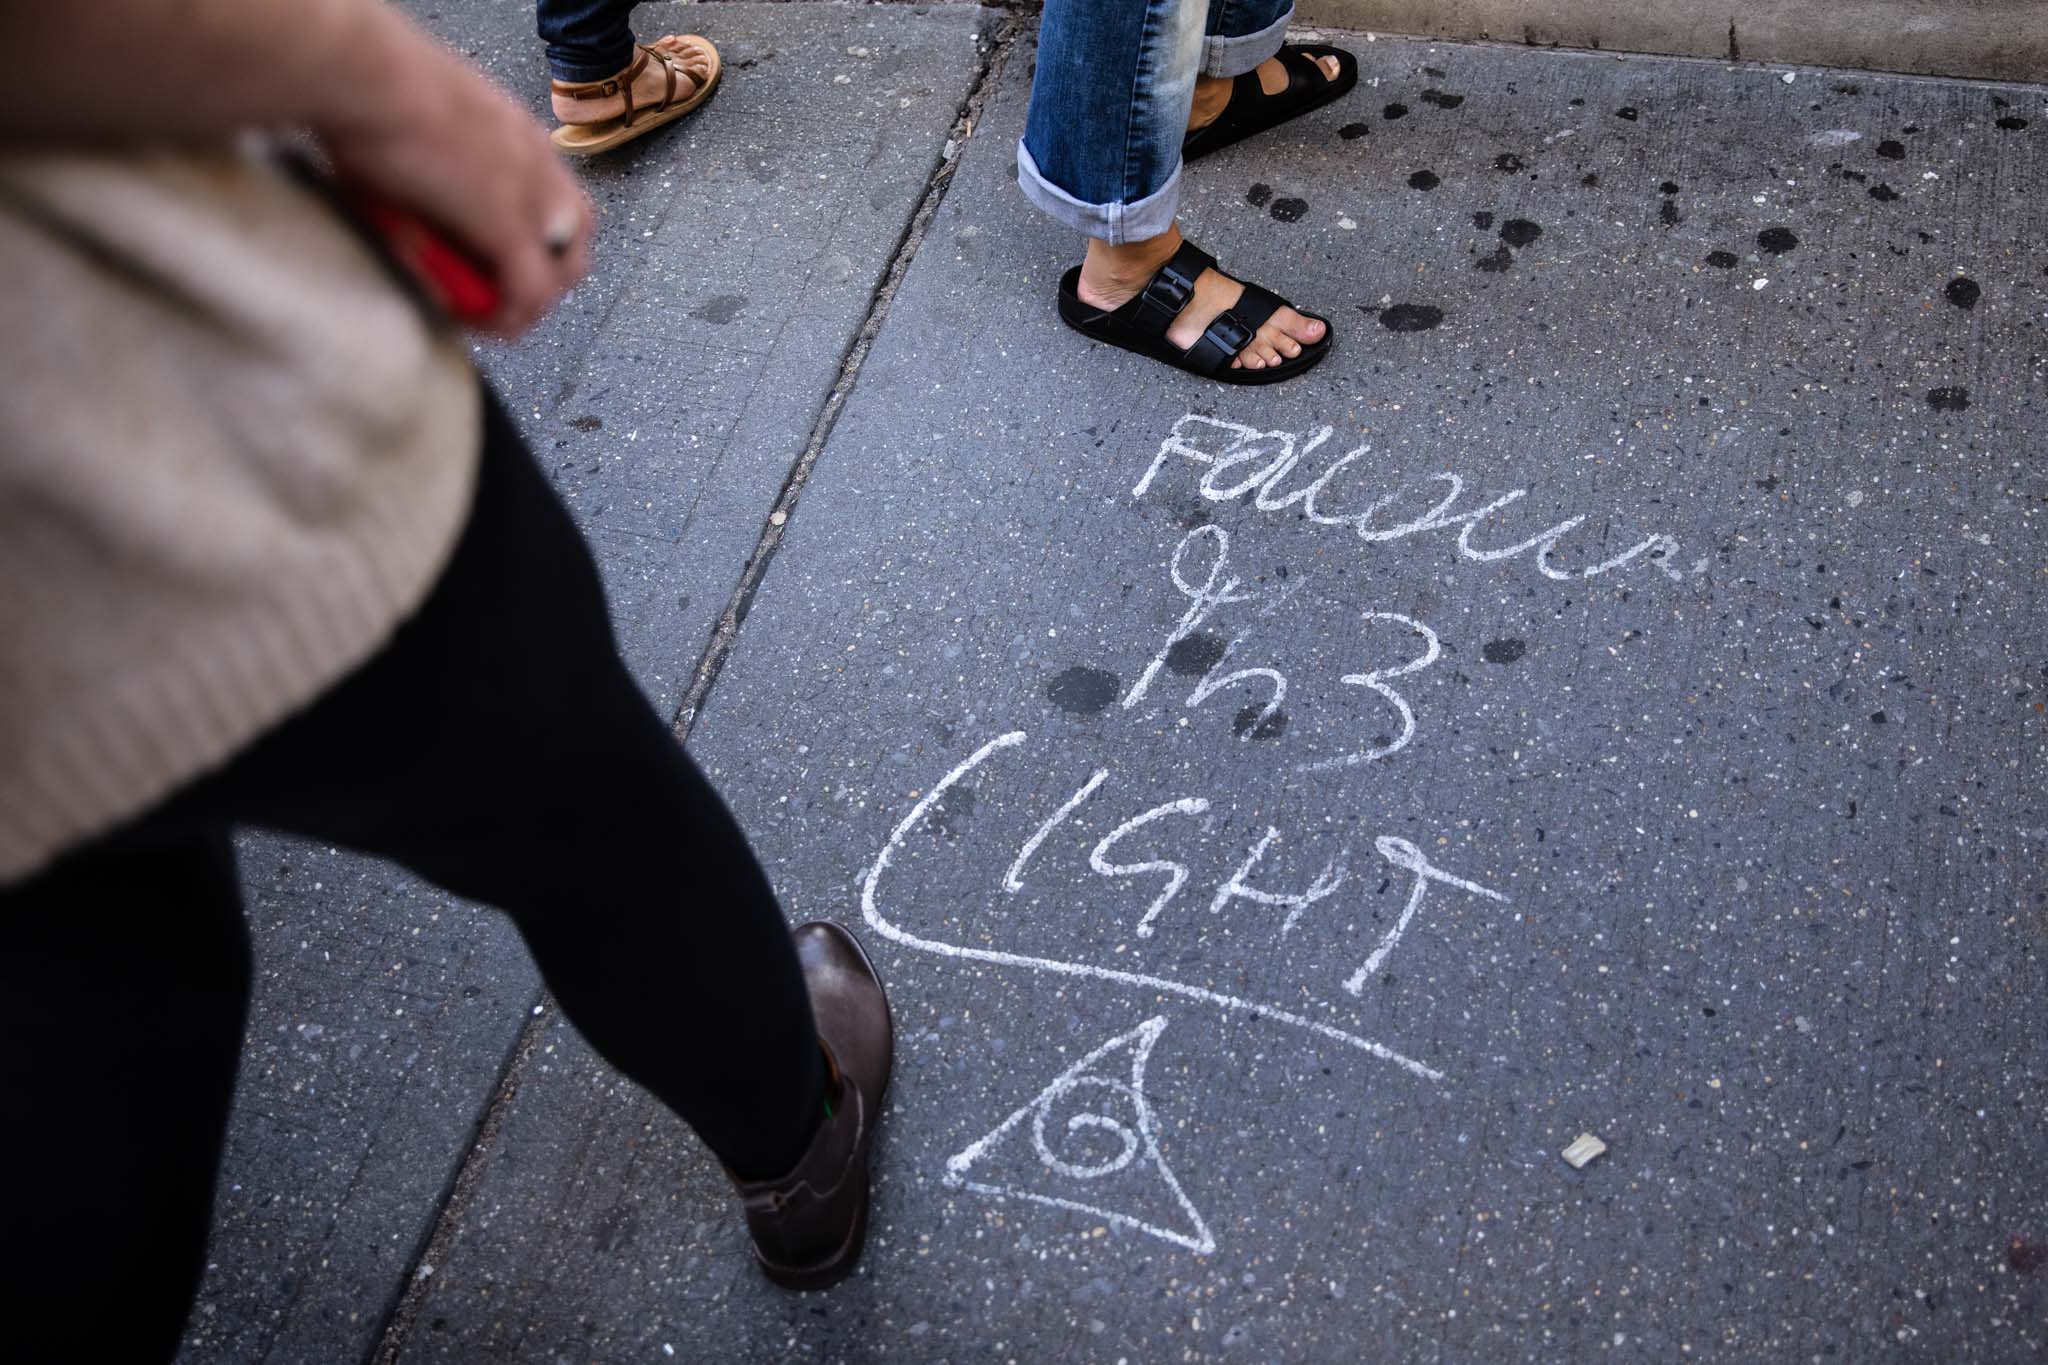 Follow
In 3
LIGHT